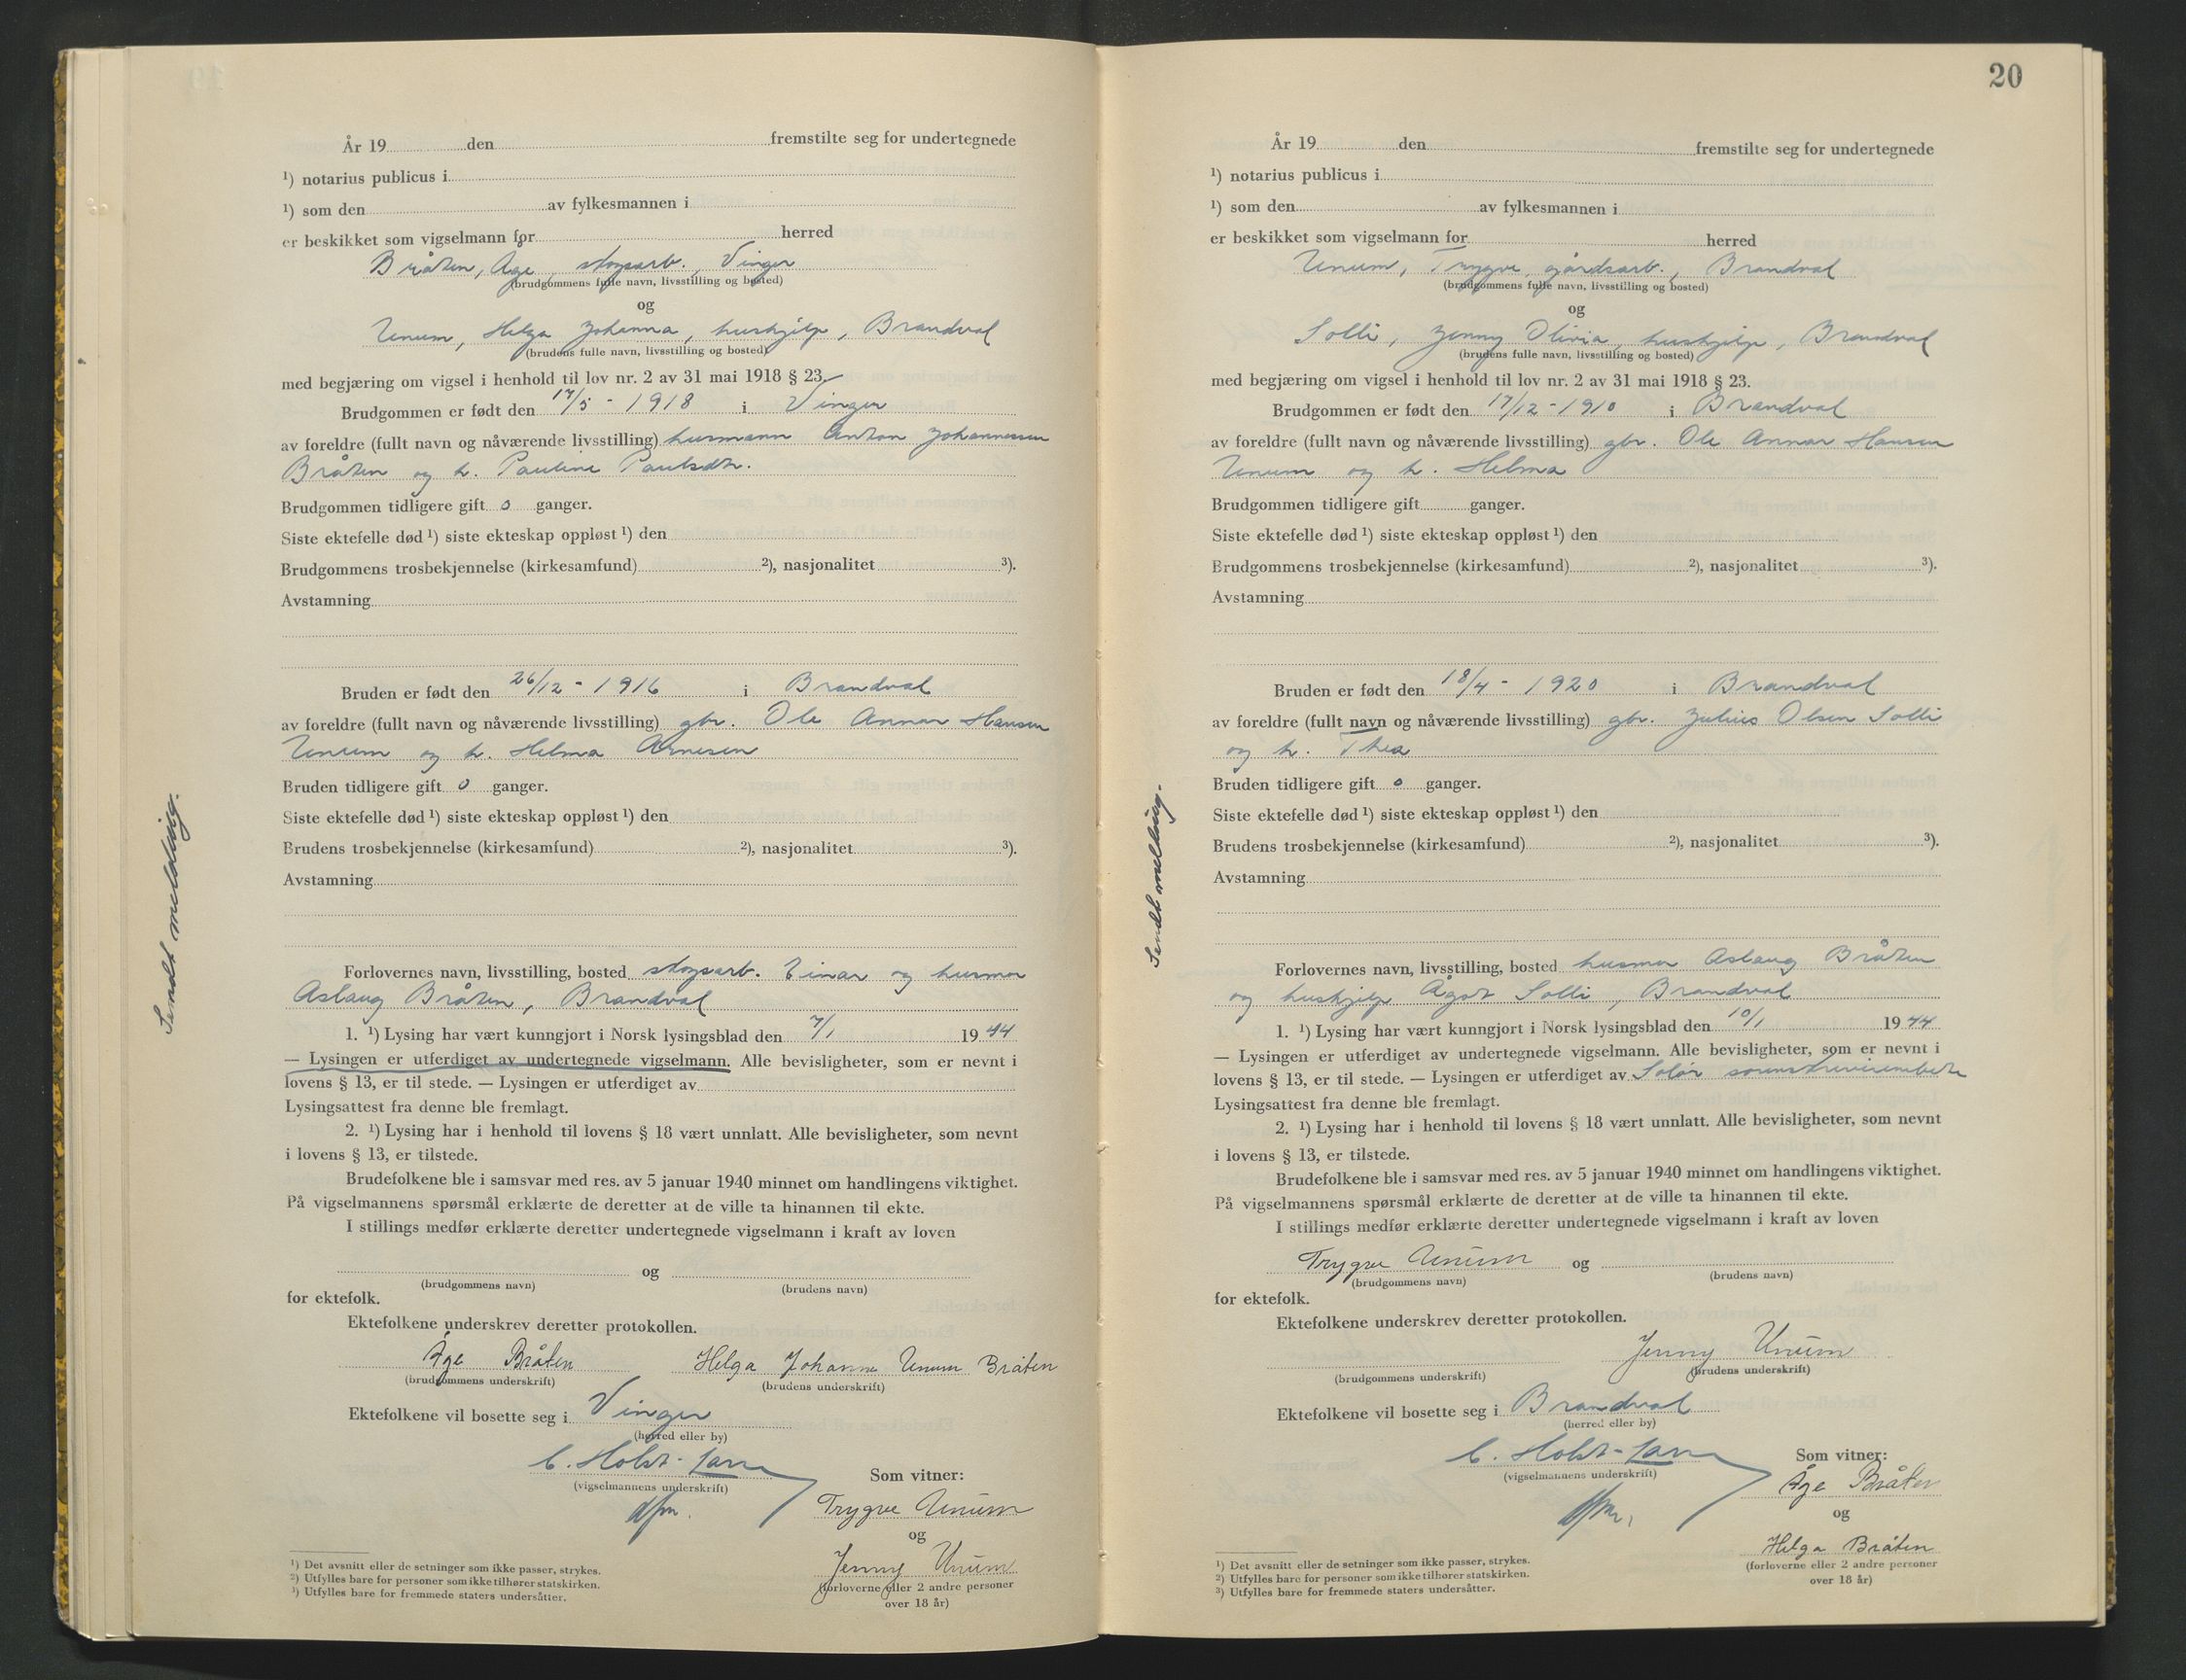 År 19 den fremstilte seg for undertegnede
¹) notarius publicus i
¹) som den av fylkesmannen i
er beskikket som vigselmann for herred
Bråten, Åge, skogsarb., Vinger
(brudgommens fulle navn, livsstilling og bosted)
og
Unum, Helga Johanna, hushjelp, Brandval
(brudens fulle navn, livsstilling og bosted)
med begjæring om vigsel i henhold til lov nr. 2 av 31 mai 1918 § 23.
Brudgommen er født den 17/5 - 1918 i Vinger
av foreldre (fullt navn og nåværende livsstilling) husmann Anton Johannessen
Bråten og h. Pauline Paulsdtr.
Brudgommen tidligere gift 0 ganger.
Siste ektefelle død ¹) siste ekteskap oppløst ¹) den
Brudgommens trosbekjennelse (kirkesamfund) ²), nasjonalitet ³).
Avstamning
Bruden er født den 26/12 - 1916 i Brandval
av foreldre (fullt navn og nåværende livsstilling) gbr. Ole Annar Hansen
Unum og h. Helma Arnesen
Bruden tidligere gift 0 ganger.
Siste ektefelle død ¹) siste ekteskap oppløst ¹) den
Brudens trosbekjennelse (kirkesamfund) ²), nasjonalitet ³).
Avstamning
Sendt melding.
Forlovernes navn, livsstilling, bosted skogsarb. Einar og husmor
Aslaug Bråten, Brandval
1. ¹) Lysing har vært kunngjort i Norsk lysingsblad den 7/1 1944
— Lysingen er utferdiget av undertegnede vigselmann. Alle bevisligheter, som er nevnt i
lovens § 13, er til stede. — Lysingen er utferdiget av
Lysingsattest fra denne ble fremlagt.
2. ¹) Lysing har i henhold til lovens § 18 vært unnlatt. Alle bevisligheter, som nevnt
i lovens § 13, er tilstede.
Brudefolkene ble i samsvar med res. av 5 januar 1940 minnet om handlingens viktighet.
På vigselmannens spørsmål erklærte de deretter at de ville ta hinannen til ekte.
I stillings medfør erklærte deretter undertegnede vigselmann i kraft av loven
og
(brudgommens navn) (brudens navn)
for ektefolk.
Ektefolkene underskrev deretter protokollen.
Åge Bråten Helga Johanna Unum Bråten
(brudgommens underskrift) (brudens underskrift)
Ektefolkene vil bosette seg i Vinger
(herred eller by)
C. Holst-Larsen
(vigselmannens underskrift)
Som vitner:
Trygve Unum
og
Jenny Unum
(forloverne eller 2 andre personer
over 18 år)
¹) Det avsnitt eller de setninger som ikke passer, strykes.
²) Utfylles bare for personer som ikke tilhører statskirken.
³) Utfylles bare for fremmede staters undersåtter.
20
År 19 den fremstilte seg for undertegnede
¹) notarius publicus i
¹) som den av fylkesmannen i
er beskikket som vigselmann for herred
Unum, Trygve, gårdsarb., Brandval
(brudgommens fulle navn, livsstilling og bosted)
og
Solli, Jenny Olivia, hushjelp, Brandval
(brudens fulle navn, livsstilling og bosted)
med begjæring om vigsel i henhold til lov nr. 2 av 31 mai 1918 § 23.
Brudgommen er født den 17/12 - 1910 i Brandval
av foreldre (fullt navn og nåværende livsstilling) gbr. Ole Annar Hansen
Unum og h. Helma
Brudgommen tidligere gift ganger.
Siste ektefelle død ¹) siste ekteskap oppløst ¹) den
Brudgommens trosbekjennelse (kirkesamfund) ²), nasjonalitet ³).
Avstamning
Bruden er født den 18/4 - 1920 i Brandval
av foreldre (fullt navn og nåværende livsstilling) gbr. Julius Olsen Solli
og h. Thea
Bruden tidligere gift 0 ganger.
Siste ektefelle død ¹) siste ekteskap oppløst ¹) den
Brudens trosbekjennelse (kirkesamfund) ²), nasjonalitet ³).
Avstamning
Sendt melding.
Forlovernes navn, livsstilling, bosted husmor Aslaug Bråten
og hushjelp Ågot Solli, Brandval
1. ¹) Lysing har vært kunngjort i Norsk lysingsblad den 10/1 1944
— Lysingen er utferdiget av undertegnede vigselmann. Alle bevisligheter, som er nevnt i
lovens § 13, er til stede. — Lysingen er utferdiget av Solør sorenskriverembete
Lysingsattest fra denne ble fremlagt.
2. ¹) Lysing har i henhold til lovens § 18 vært unnlatt. Alle bevisligheter, som nevnt
i lovens § 13, er tilstede.
Brudefolkene ble i samsvar med res. av 5 januar 1940 minnet om handlingens viktighet.
På vigselmannens spørsmål erklærte de deretter at de ville ta hinannen til ekte.
I stillings medfør erklærte deretter undertegnede vigselmann i kraft av loven
Trygve Unum og
(brudgommens navn) (brudens navn)
for ektefolk.
Ektefolkene underskrev deretter protokollen.
Jenny Unum
(brudgommens underskrift) (brudens underskrift)
Ektefolkene vil bosette seg i Brandval
(herred eller by)
C. Holst-Larsen
(vigselmannens underskrift)
Som vitner:
Åge Bråten
og
Helga Bråten
(forloverne eller 2 andre personer
over 18 år)
¹) Det avsnitt eller de setninger som ikke passer, strykes.
²) Utfylles bare for personer som ikke tilhører statskirken.
³) Utfylles bare for fremmede staters undersåtter.